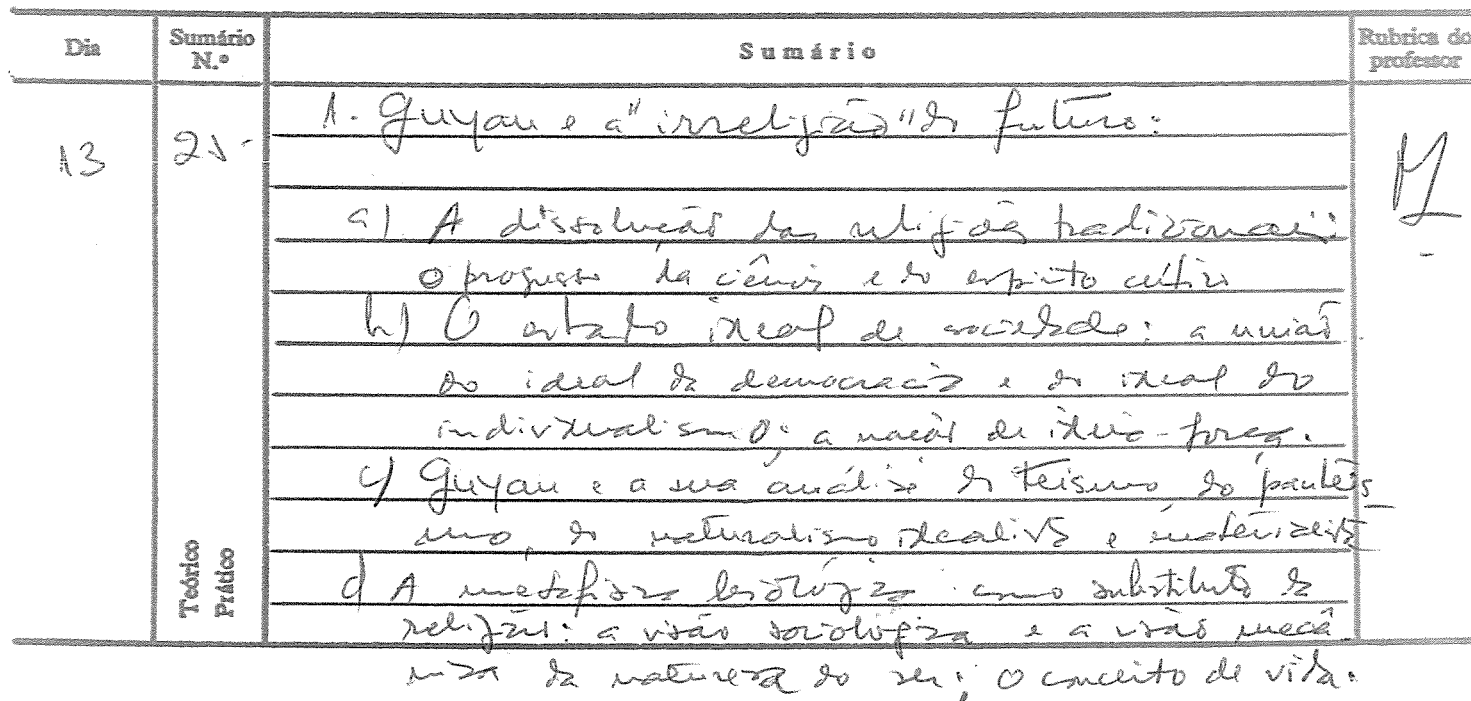 Dia
Sumário N.º
Sumário
Rubrica do professor
13
25-
1. Guyau e a "irreligião" do futuro:
a) A dissolução das religiões tradicionais:
o progresso da ciência e do espírito crítico
b) O estado ideal de sociedade: a união
do ideal da democracia e do ideal do
individualismo; a noção de ideia-força.
c) Guyau e a sua análise do teísmo do panteís
mo, do naturalismo idealista e materialista
d) A metafísica biológica como substituto da
religião: a visão sociológica e a visão mecâ
nica da natureza do ser; o conceito de vida.
Teórico
Prático